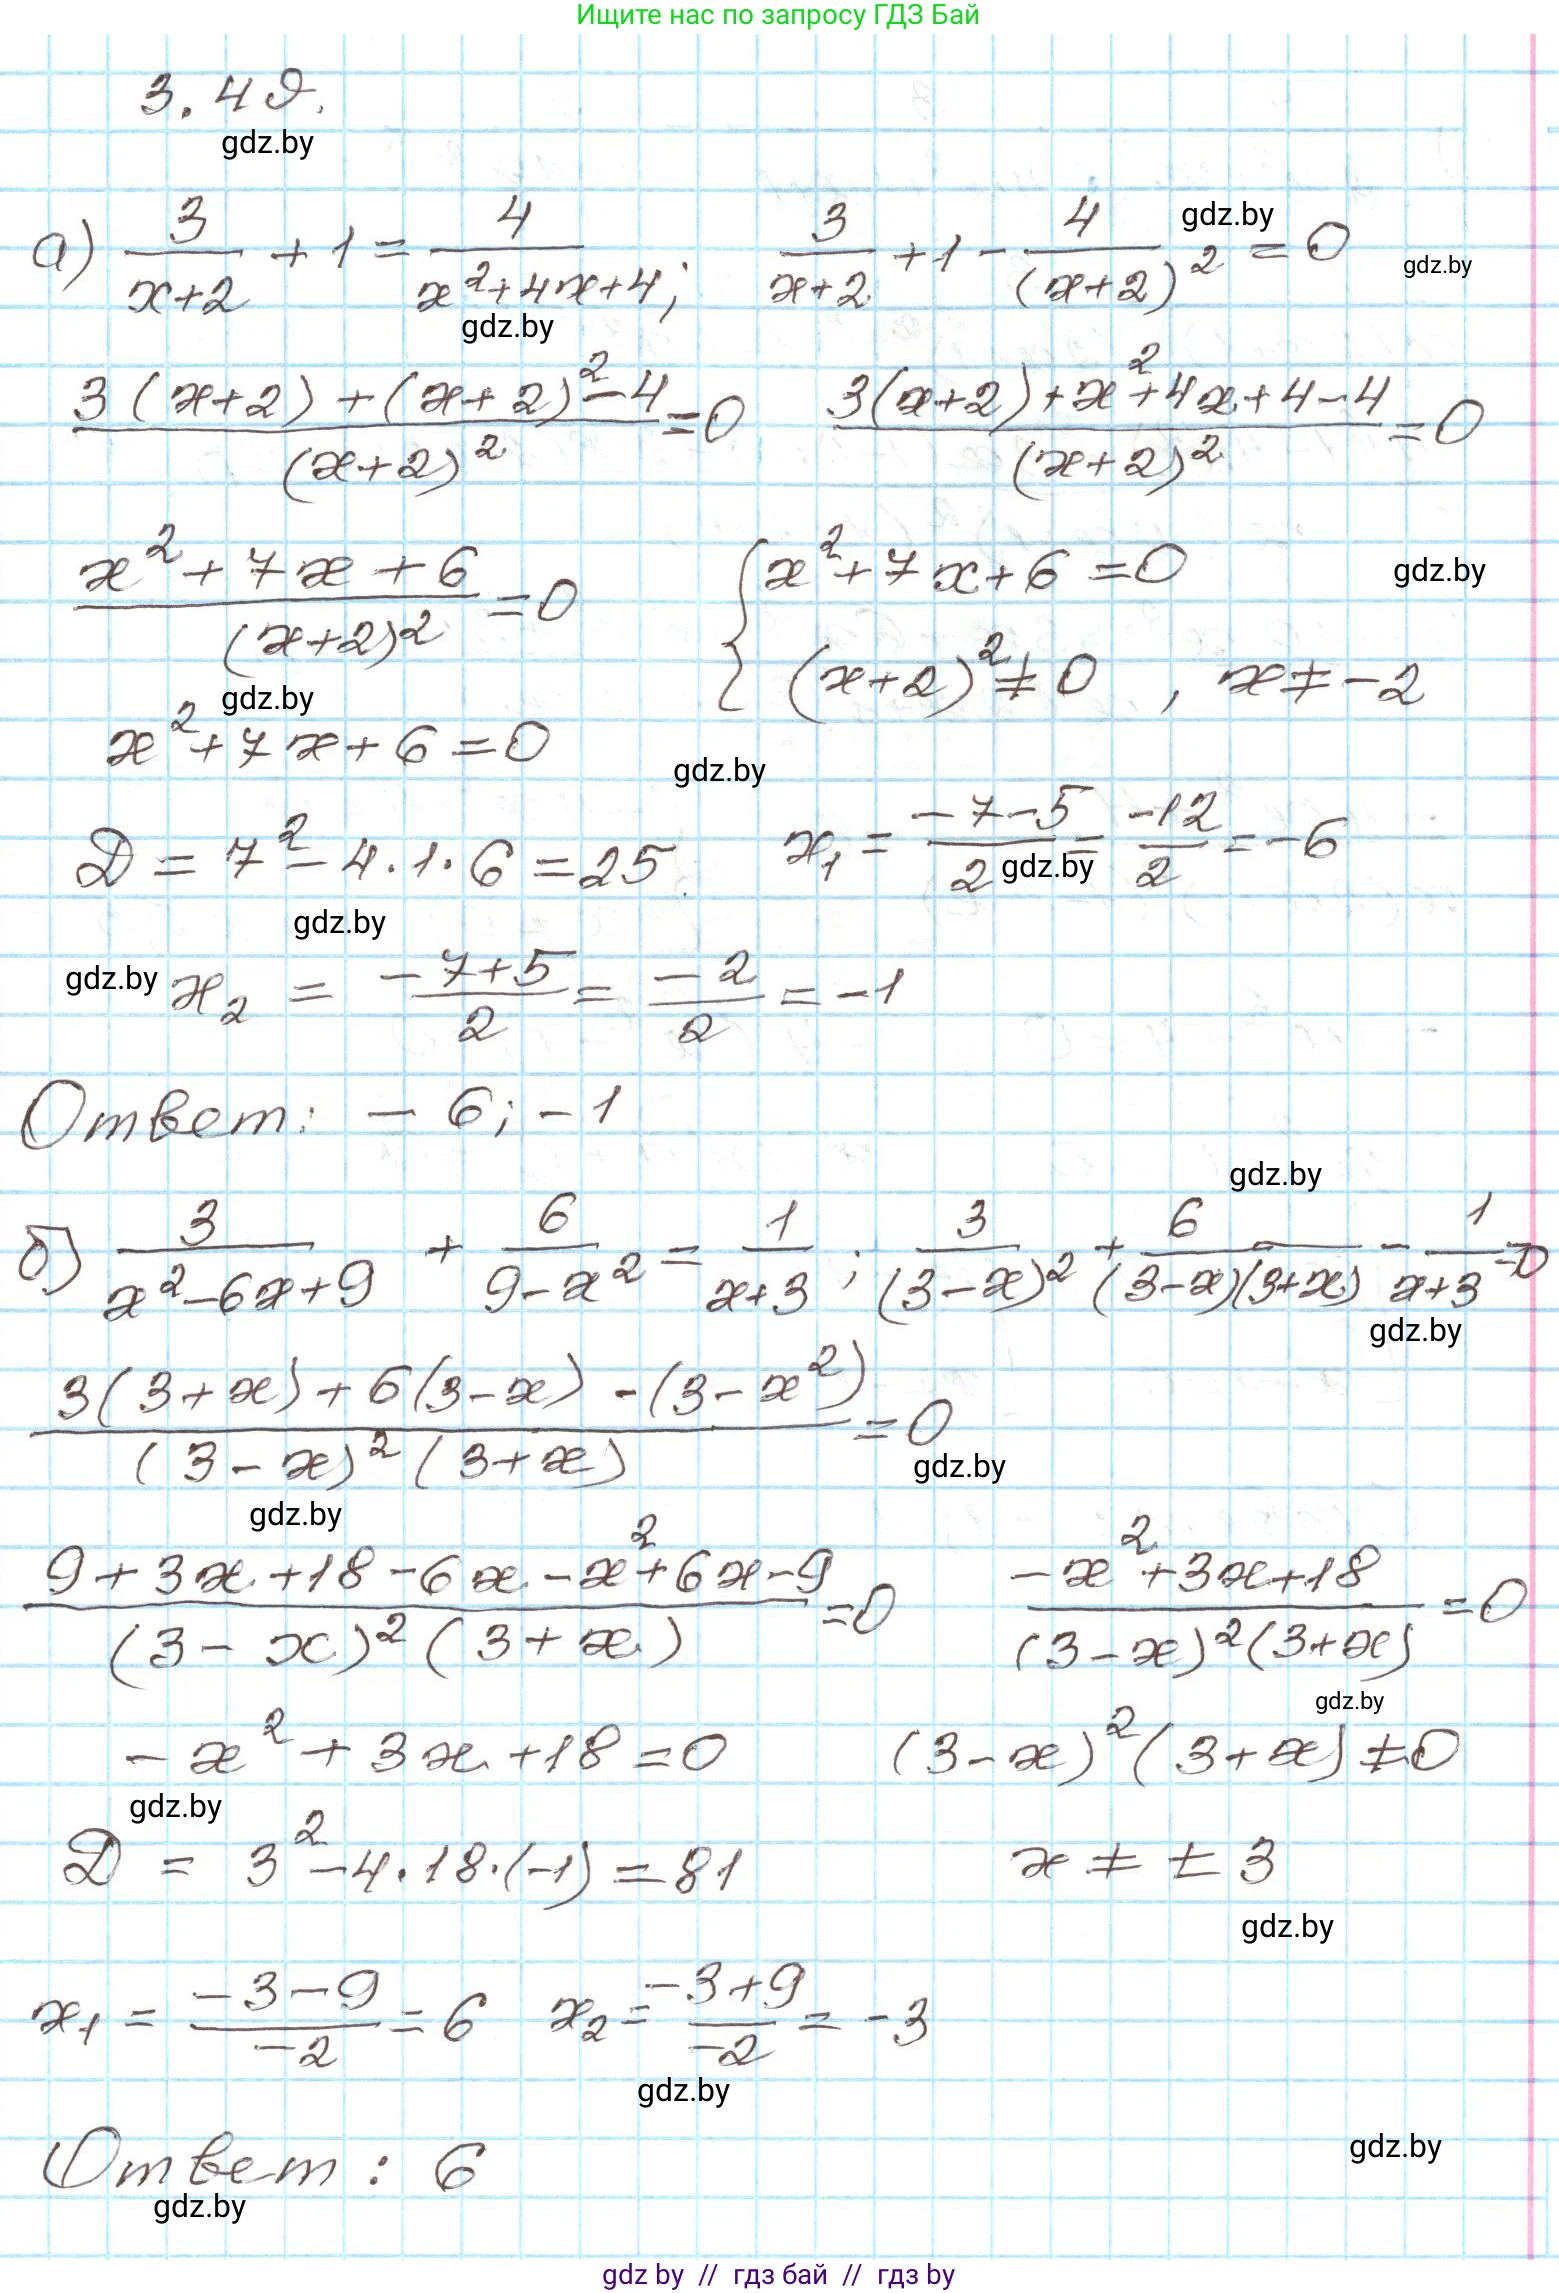 Ищите нас по запросу ГДЗ Бай
3.49.
gdz.by
а) 3/(x+2) + 1 = 4/(x²+4x+4); 3/(x+2) + 1 - 4/(x+2)² = 0
gdz.by
gdz.by
gdz.by
(3(x+2)+(x+2)²-4)/(x+2)² = 0 (3(x+2)+x²+4x+4-4)/(x+2)² = 0
(x²+7x+6)/(x+2)² = 0 { x²+7x+6=0
gdz.by
(x+2)²≠0, x≠-2
gdz.by
x²+7x+6=0
gdz.by
D = 7²-4·1·6=25 x₁ = (-7-5)/2 = -12/2 = -6
gdz.by
gdz.by
gdz.by x₂ = (-7+5)/2 = -2/2 = -1
Ответ: -6; -1
gdz.by
б) 3/(x²-6x+9) + 6/(9-x²) = 1/(x+3); 3/(3-x)² + 6/((3-x)(3+x)) - 1/(x+3) = 0
gdz.by
(3(3+x)+6(3-x)-(3-x²))/((3-x)²(3+x)) = 0
gdz.by
gdz.by
(9+3x+18-6x-x²+6x-9)/((3-x)²(3+x)) = 0 (-x²+3x+18)/((3-x)²(3+x)) = 0
gdz.by
-x²+3x+18=0 (3-x)²(3+x)≠0
gdz.by
D = 3²-4·18·(-1)=81 x ≠ ±3
gdz.by
x₁ = (-3-9)/-2 = 6 x₂ = (-3+9)/-2 = -3
gdz.by
gdz.by
Ответ: 6
gdz.by
gdz by // гдз бай // gdz by